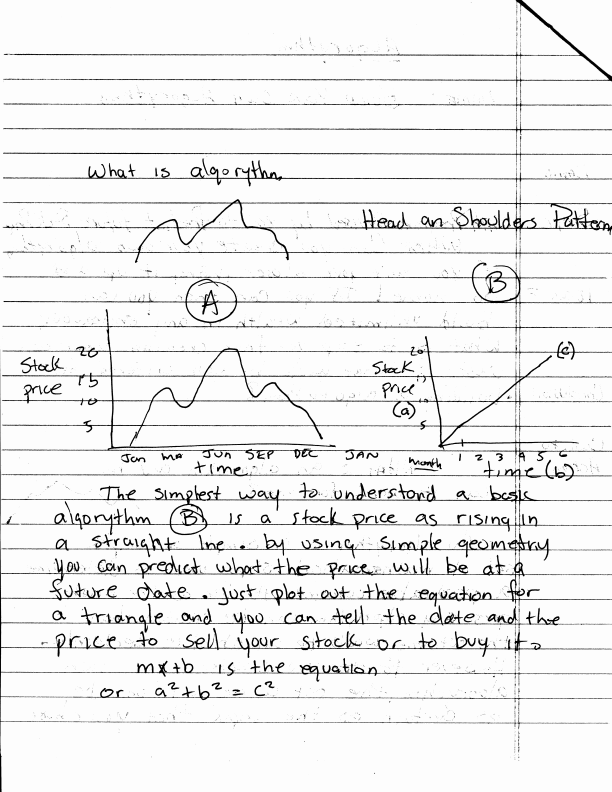 What is algorythm.
Head an Shoulders Pattern
A
B
20
Stock
15
price
10
5
Jan Ma Jun SEP DEC JAN
time
20
(c)
Stock
15
price
10
(a)
5
month 1 2 3 4 5 6
time (b)
The simplest way to understand a basic
algorythm B is a stock price as rising in
a straight line. by using simple geometry
you can predict what the price will be at a
future date. Just plot out the equation for
a triangle and you can tell the date and the
price to sell your stock or to buy it.
mx+b is the equation
or a² + b² = c²